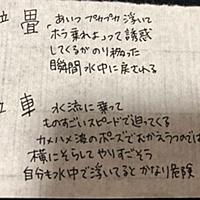 位 畳 あいつ プカプカ 浮いて
ホラ乗れよって誘惑
してくるがのり移った
瞬間 水中に戻される
位 車 水流に乗って
ものすごいスピードで迫ってくる
カメハメ波のポーズでむかえうつのでは
横にそらしてやりすごそう
自分も水中で浮いてるとかなり危険